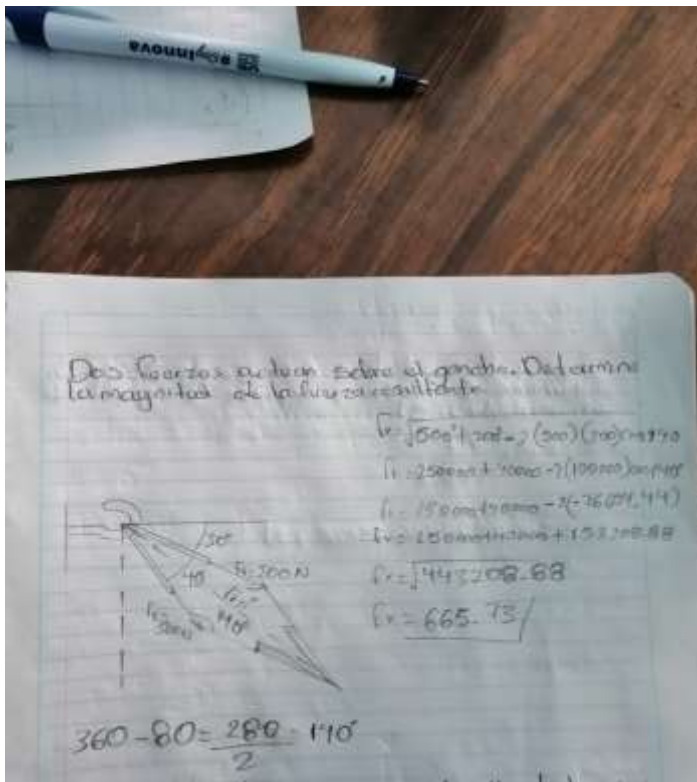 #SoyInnova
Dos fuerzas actuan sobre el gancho. Determine
la magnitud de la fuerza resultante
Fr=√500²+200²-2(500)(200)cos140
Fr=250000+40000-2(100000)cos140°
Fr=250000+40000-2(-76604.44)
Fr=250000+40000+153208.88
Fr=√443208.88
Fr=665.73
30°
40°
F1=500N
200N
140°
360-80=280=140°
2